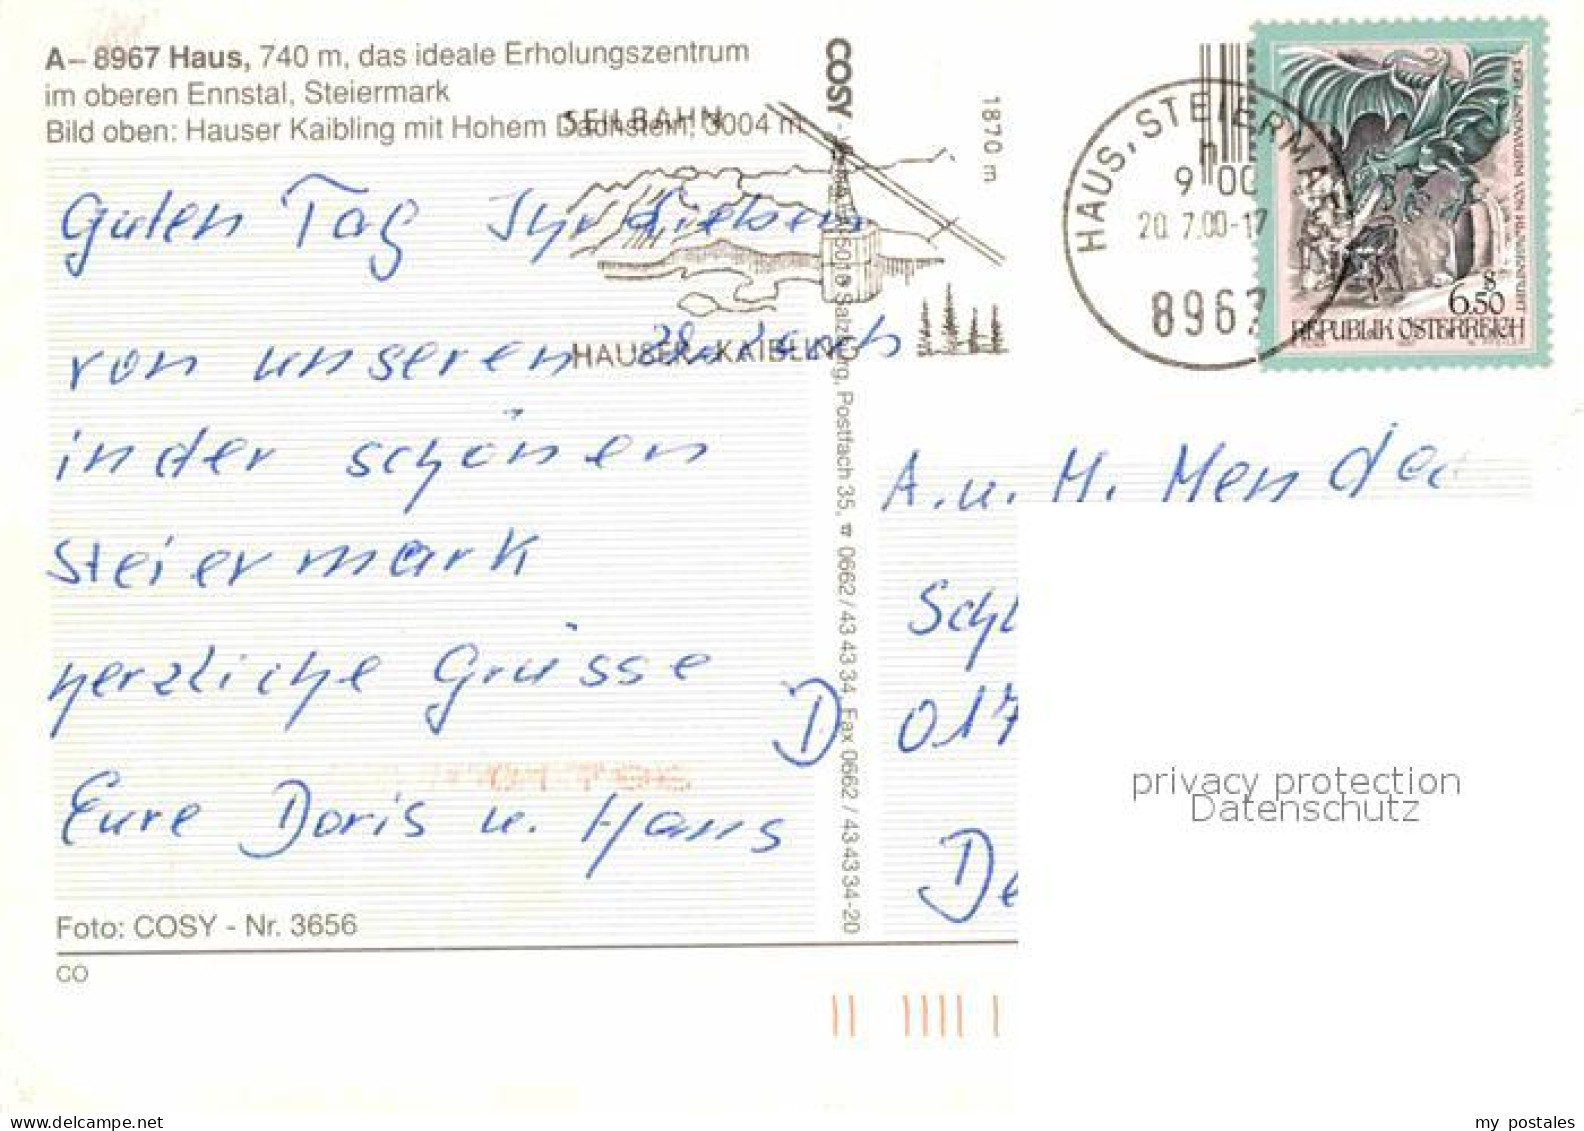 A–8967 Haus, 740 m, das ideale Erholungszentrum
im oberen Ennstal, Steiermark
Bild oben: Hauser Kaibling mit Hohem Dachstein, 3004 m
SEILBAHN
1870 m
HAUSER-KAIBLING
HAUS, STEIERMARK
9 h 00
20.7.00-17
8967
DER LINDWURM VON KLAGENFURT
S
6.50
REPUBLIK ÖSTERREICH
Guten Tag Ihr Lieben
von unseren
in der schönen
Steiermark
herzliche Grüsse
Eure Doris u. Hans
COSY - 5018 Salzburg, Postfach 35, ☎ 0662/43 43 34, Fax 0662/43 43 34-20
A. u. M. Mende
Sch
D 017
De
Foto: COSY - Nr. 3656
CO
privacy protection
Datenschutz
my postales